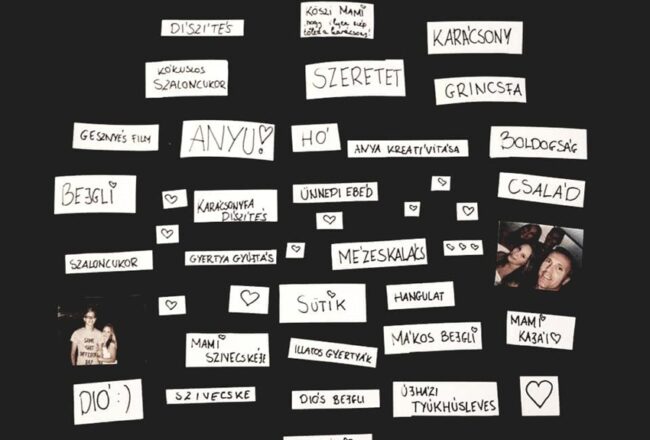 DÍSZÍTÉS
KÖSZI MAMI
hogy ilyen szép
KARÁCSONY
KÓKUSZOS
SZALONCUKOR
SZERETET
GRINCSFA
GESZNYÉS FILM
ANYU!♡
HÓ
ANYA KREATÍVITÁSA
BOLDOGSÁG
BEJGLI
KARÁCSONYFA
DÍSZÍTÉS
ÜNNEPI EBÉD
CSALÁD
SZALONCUKOR
GYERTYA GYÚJTÁS
MÉZESKALÁCS
SÜTIK
HANGULAT
MAMI
SZIVECSKÉJE
ILLATOS GYERTYÁK
MÁKOS BEJGLI
MAMI
KAJÁI♡
DIÓ :)
SZIVECSKE
DIÓS BEJGLI
ÚJHÁZI
TYÚKHÚSLEVES